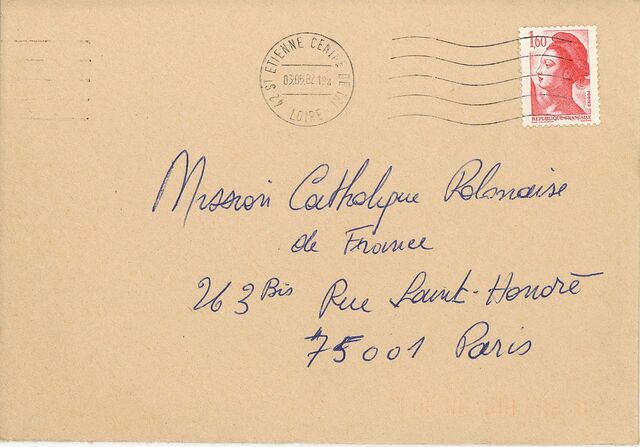 42 ST ETIENNE CENTRE DE TRI
03.05.82 19H
LOIRE
1,60
POSTES
REPUBLIQUE FRANCAISE
Mission Catholique Polonaise
de France
263 Bis Rue Saint-Honoré
75001 Paris